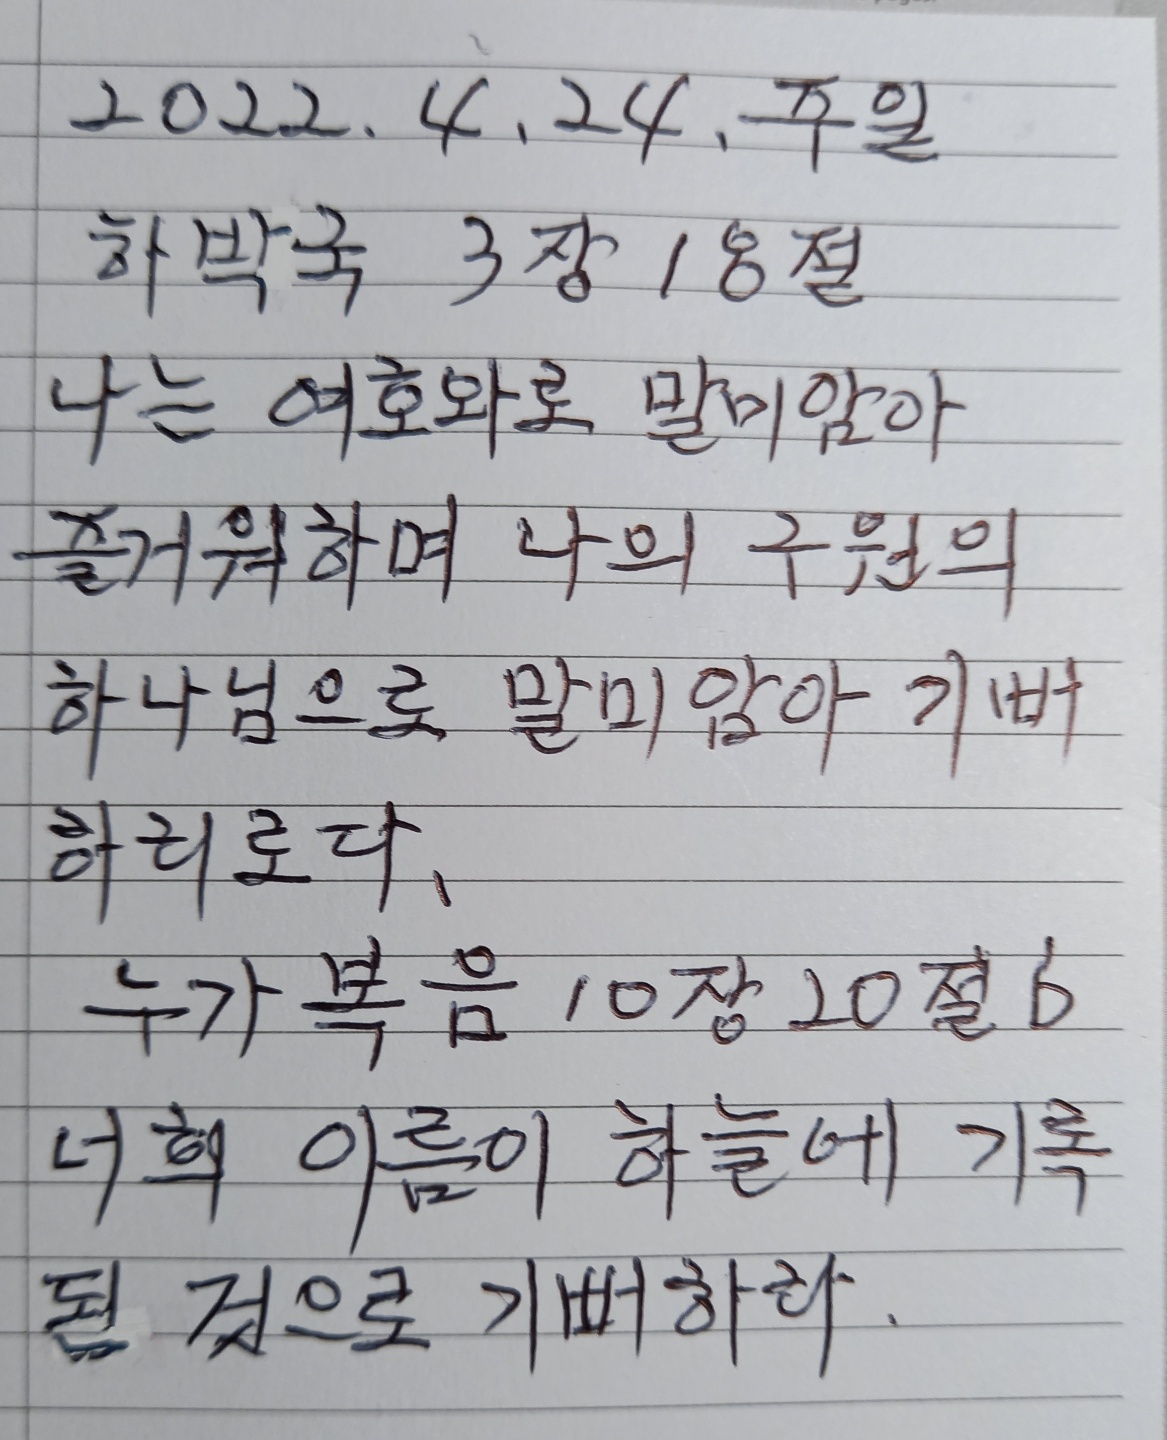 2022. 4. 24. 주일
하박국 3장 18절
나는 여호와로 말미암아
즐거워하며 나의 구원의
하나님으로 말미암아 기뻐
하리로다.
누가복음 10장 20절 b
너희 이름이 하늘에 기록
된 것으로 기뻐하라.